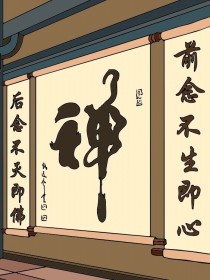 前念不生即心
禅
后念不灭即佛